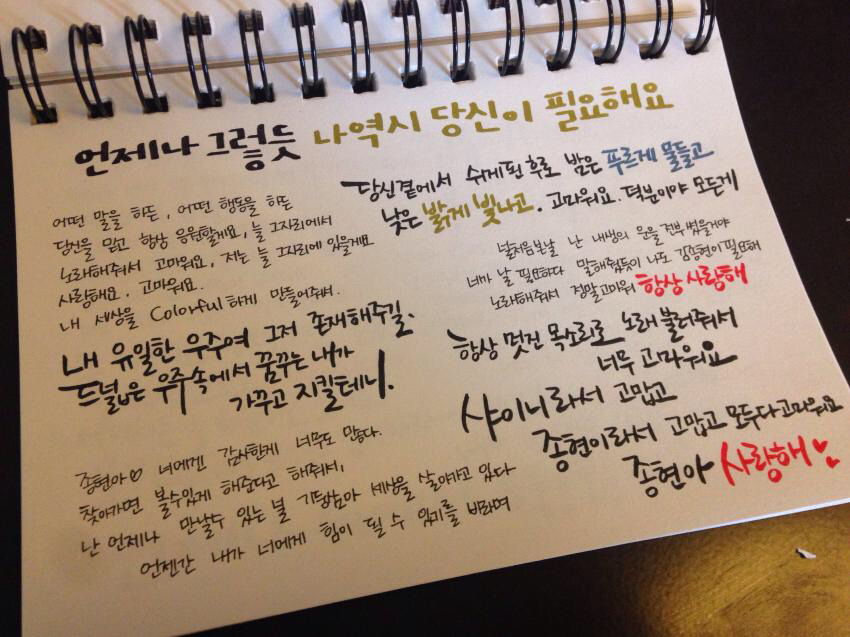 언제나 그렇듯 나 역시 당신이 필요해요
어떤 말을 하든, 어떤 행동을 하든
당신을 믿고 항상 응원할게요, 늘 그자리에서
노래해줘서 고마워요, 저는 늘 그자리에 있을게요
사랑해요. 고마워요.
내 세상을 Colorful하게 만들어줘서.
내 유일한 우주여 그저 존재해주길.
드넓은 우주속에서 꿈꾸는 내가
가꾸고 지킬테니.
종현아♡ 너에겐 감사한게 너무도 많다.
찾아가면 볼수있게 해준다고 해줘서,
난 언제나 만날수 있는 널 기둥삼아 세상을 살아가고 있다
언젠간 내가 너에게 힘이 될 수 있기를 바라며
당신곁에서 쉬게된 후로 밤은 푸르게 물들고
낮은 밝게 빛나고. 고마워요. 덕분이야 모든게
널처음본날 난 내생의 운을 전부썼을거야
너가 날 필요하다 말해줬듯이 나도 김종현이필요해
노래해줘서 정말고마워 항상 사랑해
항상 멋진 목소리로 노래 불러줘서
너무 고마워요
샤이니라서 고맙고
종현이라서 고맙고 모두다고마워요
종현아 사랑해♡